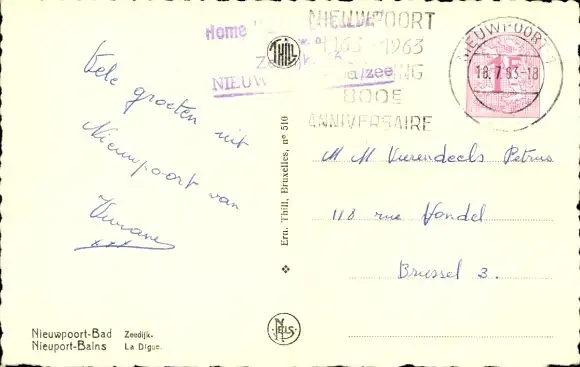 Home
NIEUW
a/zee)
NIEUWPOORT
1163-1963
800E
ANNIVERSAIRE
NIEUWPOORT 1
18.7.63-18
1F
THILL
Vele groeten uit
Nieuwpoort van
xxx
Ern. Thill, Bruxelles, nº 510
M M Vierendeels Petrus
118 rue Vondel
Brussel 3.
NELS
Nieuwpoort-Bad Zeedijk.
Nieuport-Bains La Digue.